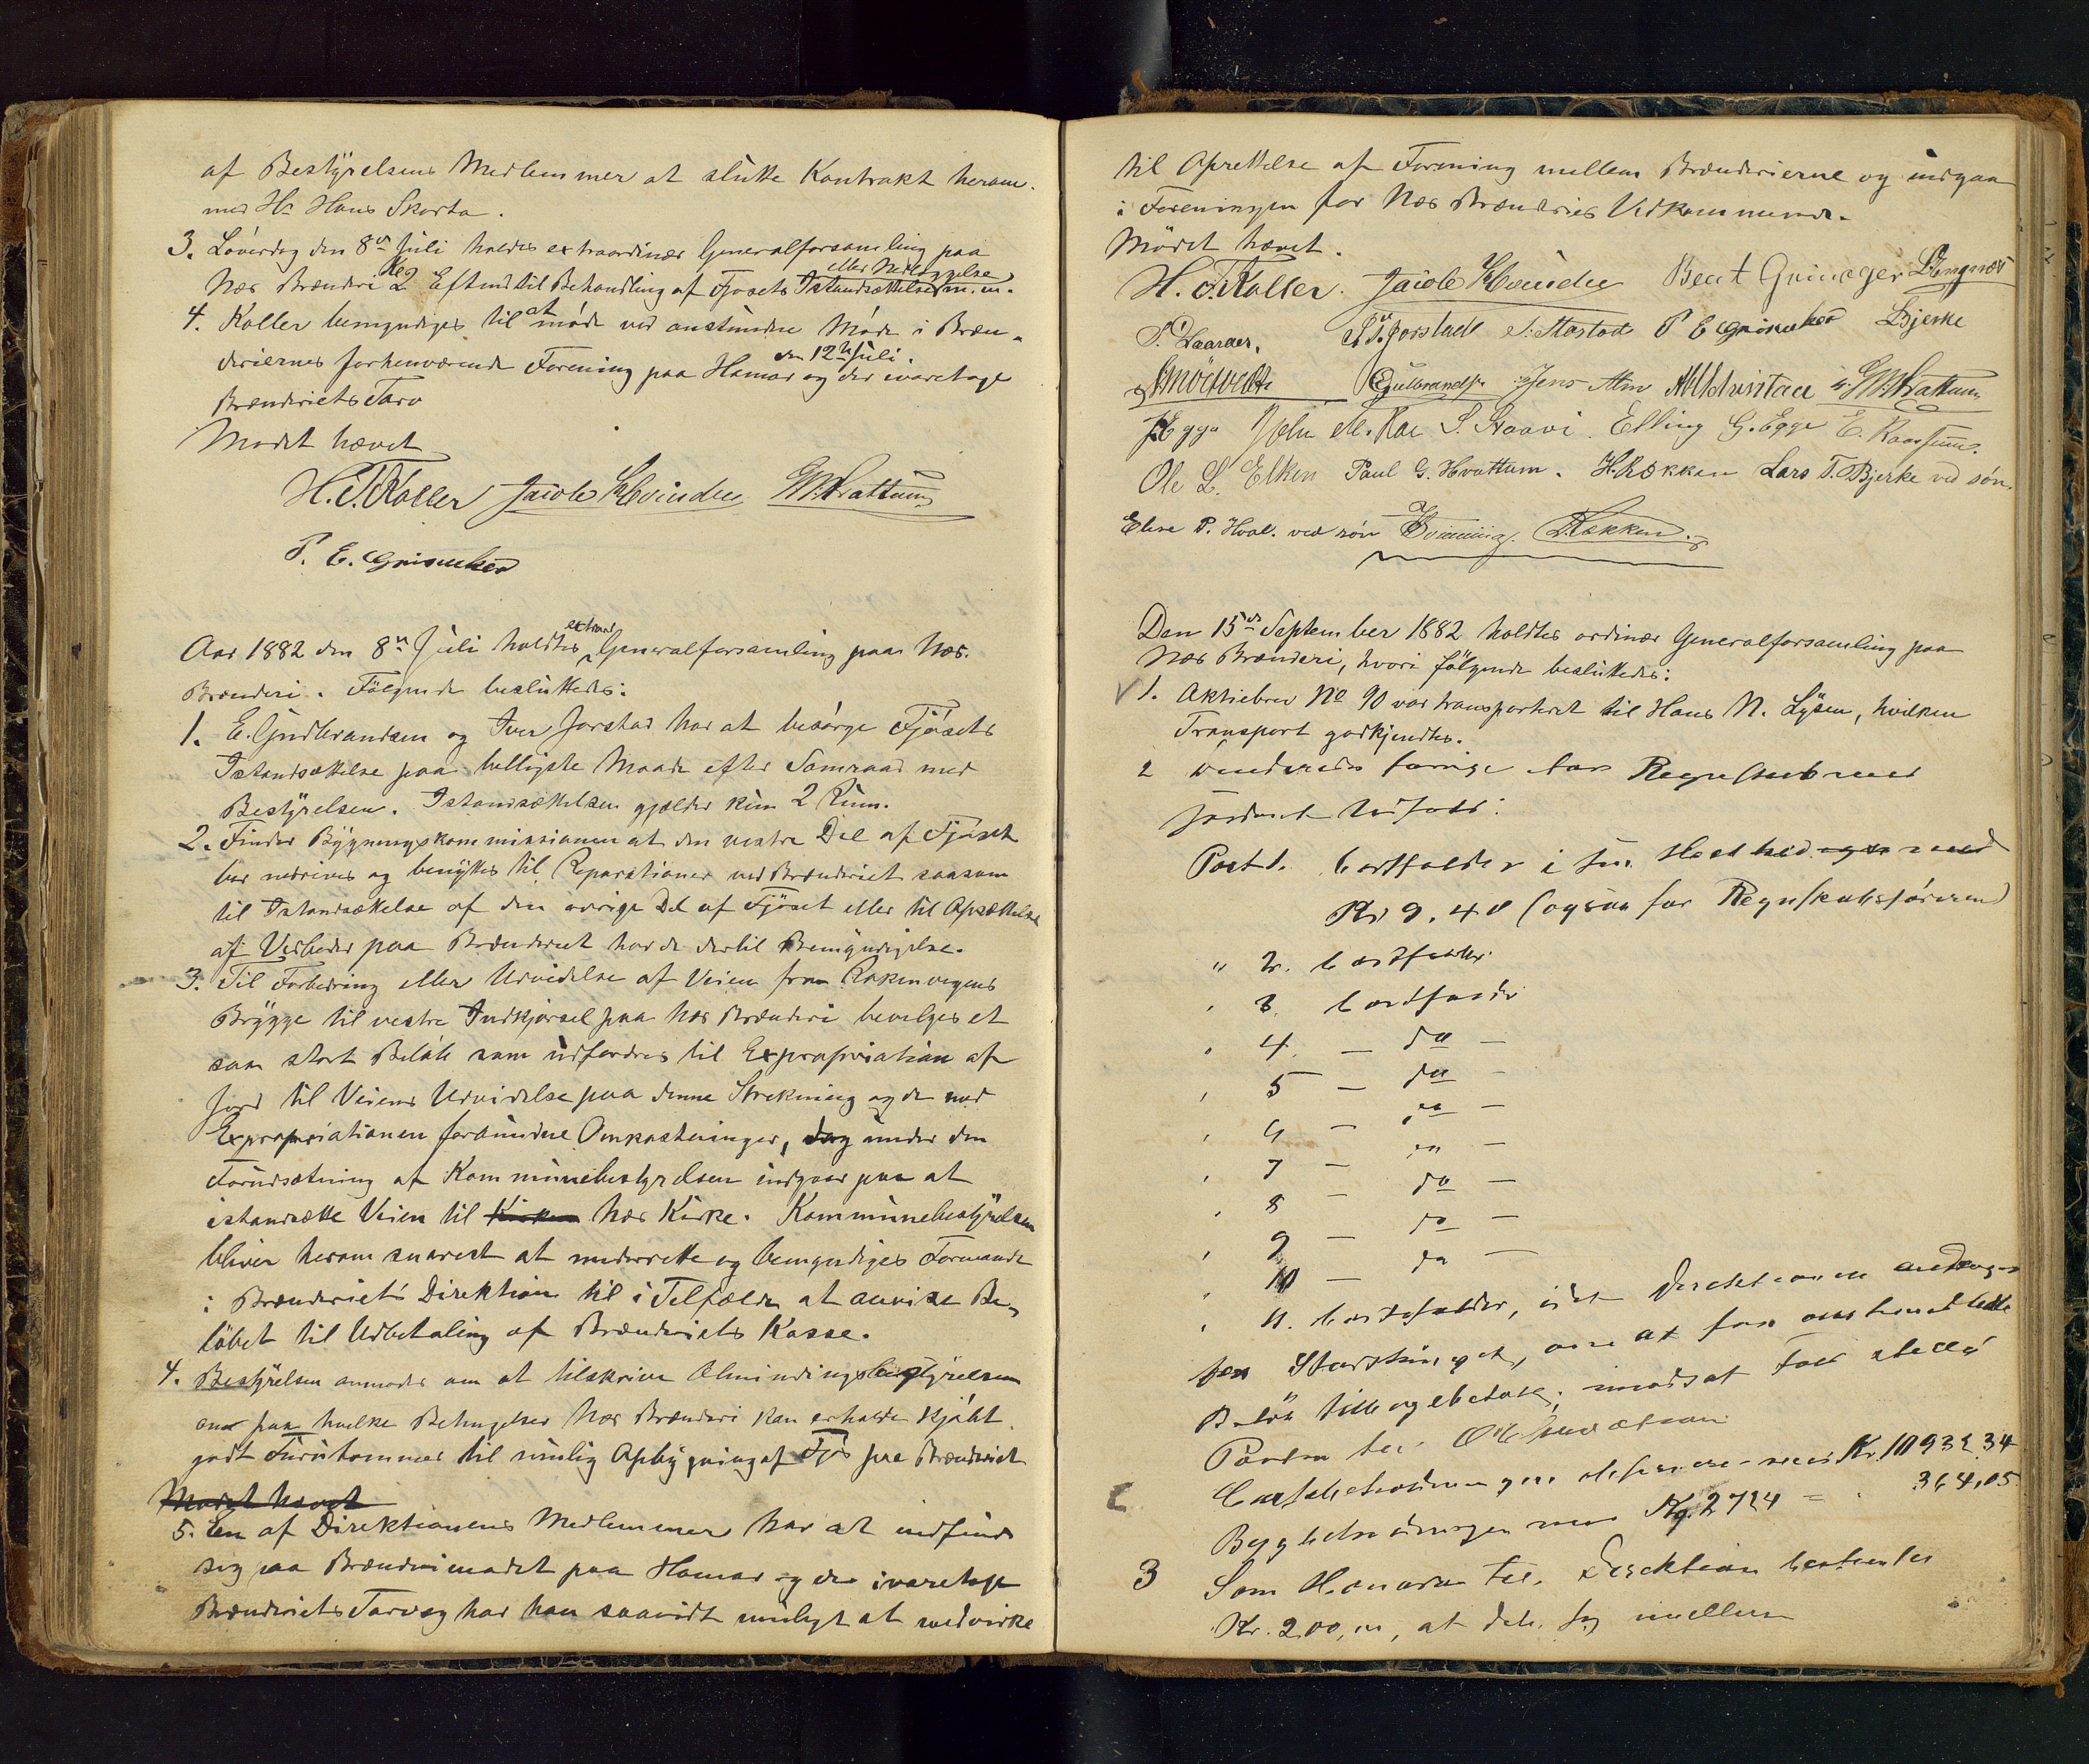 af Bestyrelsens Medlemmer at slutte Kontrakt herom
med Hr Hans Skarta.
3. Löverdag den 8de Juli holdes extraordinær Generalforsamling paa
Næs Brænderi Kl 2 Eftmd til Behandling af Fjøsets Istandsættelse eller Nedlæggelse m. m.
4. Koller bemyndiges til at møde ved anstundne Møde i Bræn-
deriernes forhenværende Forening paa Hamar den 12te Juli og der ivaretage
Brænderiets Tarv
Mødet hævet
H. F. Koller Jacob Hvinden G. P. Hvattum
P. E. Grineker
Aar 1882 den 8de Juli holdtes extraord Generalforsamling paa Næs.
Brænderi. Følgende besluttedes:
1. E. Gudbrandsen og Iver Jorstad har at besørge Fjøsets
Istandsættelse paa belligste Maade efter Samraad med
Bestyrelsen. Istandsættelsen gjælder kun 2 Rum.
2. Finder Bygningskommissionen at den vestre Del af Fjøset
bør nedrives og benyttes til Reparationer ved Brænderiet saasom
til Istandsættelse af den øvrige Del af Fjøset eller til Opsættelse
af Vedboder paa Brænderiet har de dertil Bemyndigelse.
3. Til Forbedring eller Udvidelse af Veien fra Rækenvegens
Brygge til vestre Indkjørsel paa Næs Brænderi bevilges et
saa stort Beløb som udfordres til Expropriation af
Jord til Veiens Udvidelse paa denne Strekning og de med
Expropriationen forbundne Omkostninger, dog under den
Forudsætning at Kommunebestyrelsen indgaar paa at
istandsætte Veien til Kirken Næs Kirke. Kommunebestyrelsen
bliver herom snarest at underrette og bemyndiges Formanden
i Brænderiets Direktion til i Tilfælde at anvise Be-
løbet til Udbetaling af Brænderiets Kasse.
4. Bestyrelsen anmodes om at tilskrive Almindingsbestyrelsen
om paa hvilke Betingelser Næs Brænderi kan erholde kjøbt
godt Furutømmer til mulig Opbygning af Fjøs paa Brænderiet
Mødet hævet
5. En af Direktionens Medlemmer har at indfinde
sig paa Brænderimødet paa Hamar og der ivaretage
Brænderiets Tarv og har han saavidt muligt at medvirke
til Oprettelse af Forening mellem Brænderierne og indgaa
i Foreningen for Næs Brænderies Vedkommende.
Mödet hævet.
H. F. Koller. Jacob Hvinden Bent Grineger
P. Gaarder. J. Jorstad S. Stastad P E Grineker LBjerke
EGulbrandsen Jens Alm G. P. Hvattum
JEgge John S. Staavi. Elling G. Egge E.
Ole L. Elken Paul G. Hvattum. H. Røkken Lars T. Bjerke ved søn.
Else P. Hval. ved søn Røkken.
Den 15de September 1882 holdtes ordinær Generalforsamling paa
Næs Brænderi, hvori fölgende besluttedes:
1. Aktiebrev No 90 var transporteret til Hans N. Lysen, hvilken
Transport godkjendtes.
2 forrige Aars Regnskab med
saadant Udfald:
Post 1. bortfalder i sin Helhed med
Kr 9.40 (ogsaa for Regnskabsføreren)
" 2. bortfalder
" 3. bortfalder
" 4. — do —
" 5 — do —
" 6 — do —
" 7 — do —
" 8 — do —
" 9 — do —
" 10 — do —
" 11. bortfalder, idet Direktionen
Beløb tilbagebetalt; modsat Fald
Posten til
Kr. 10932.34
Kg. 2724 = " 364,05
3 Som Honorar til Direktion
Kr. 200,00, at dele sig imellem